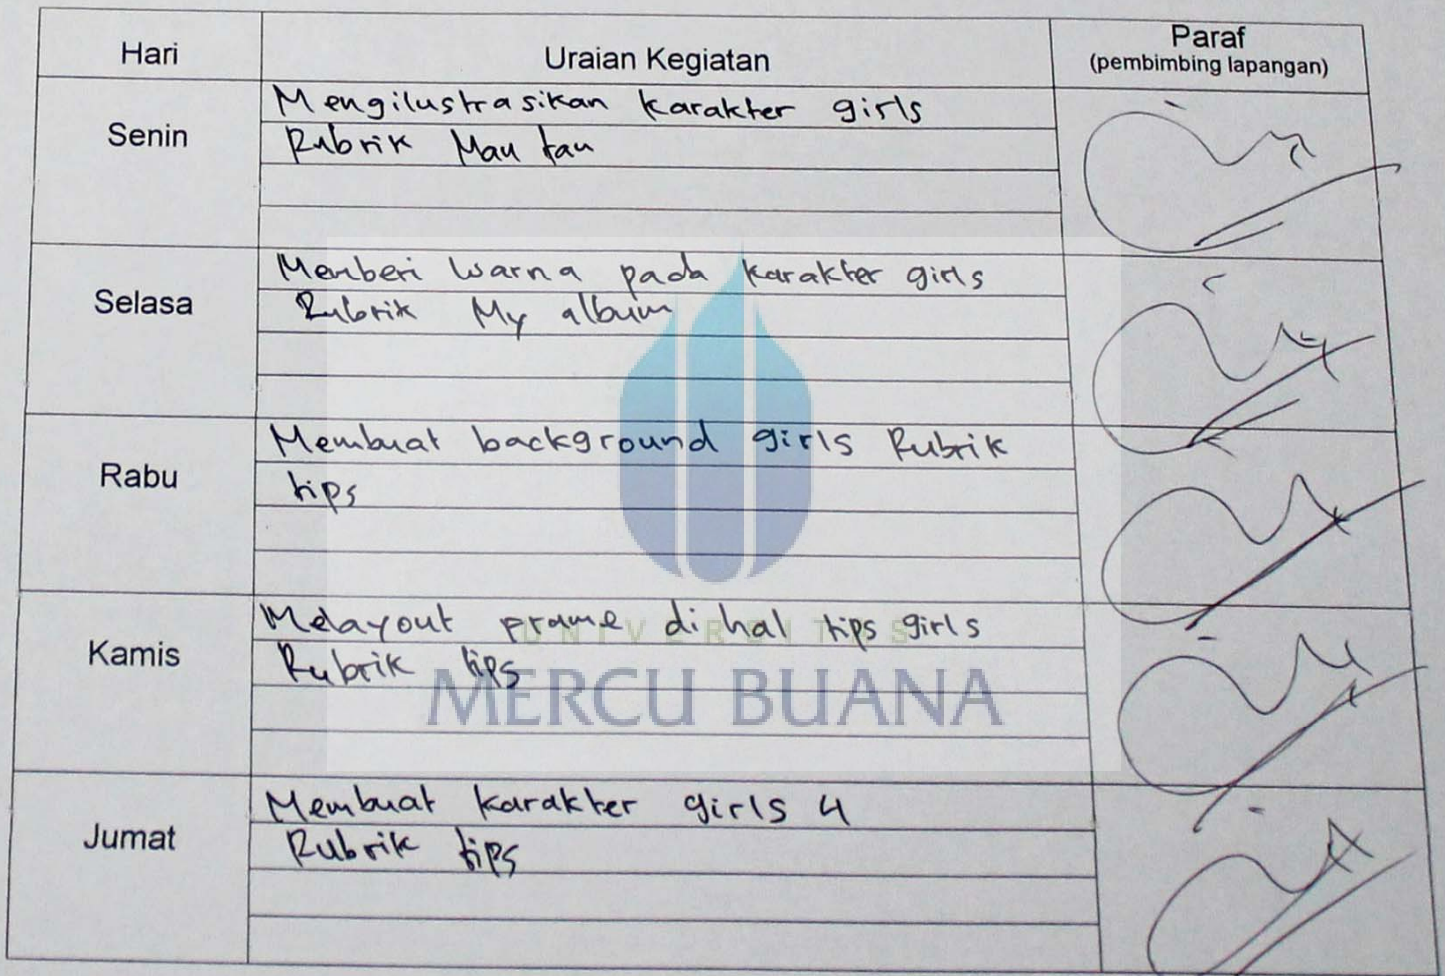 Hari
Uraian Kegiatan
Paraf
(pembimbing lapangan)
Senin
Mengilustrasikan karakter girls
Rubrik Mau tau
Selasa
Memberi warna pada karakter girls
Rubrik My album
Rabu
Membuat background girls Rubrik
tips
Kamis
Melayout prame dihal tips girls
Rubrik tips
UNIVERSITAS
MERCU BUANA
Jumat
Membuat karakter girls 4
Rubrik tips